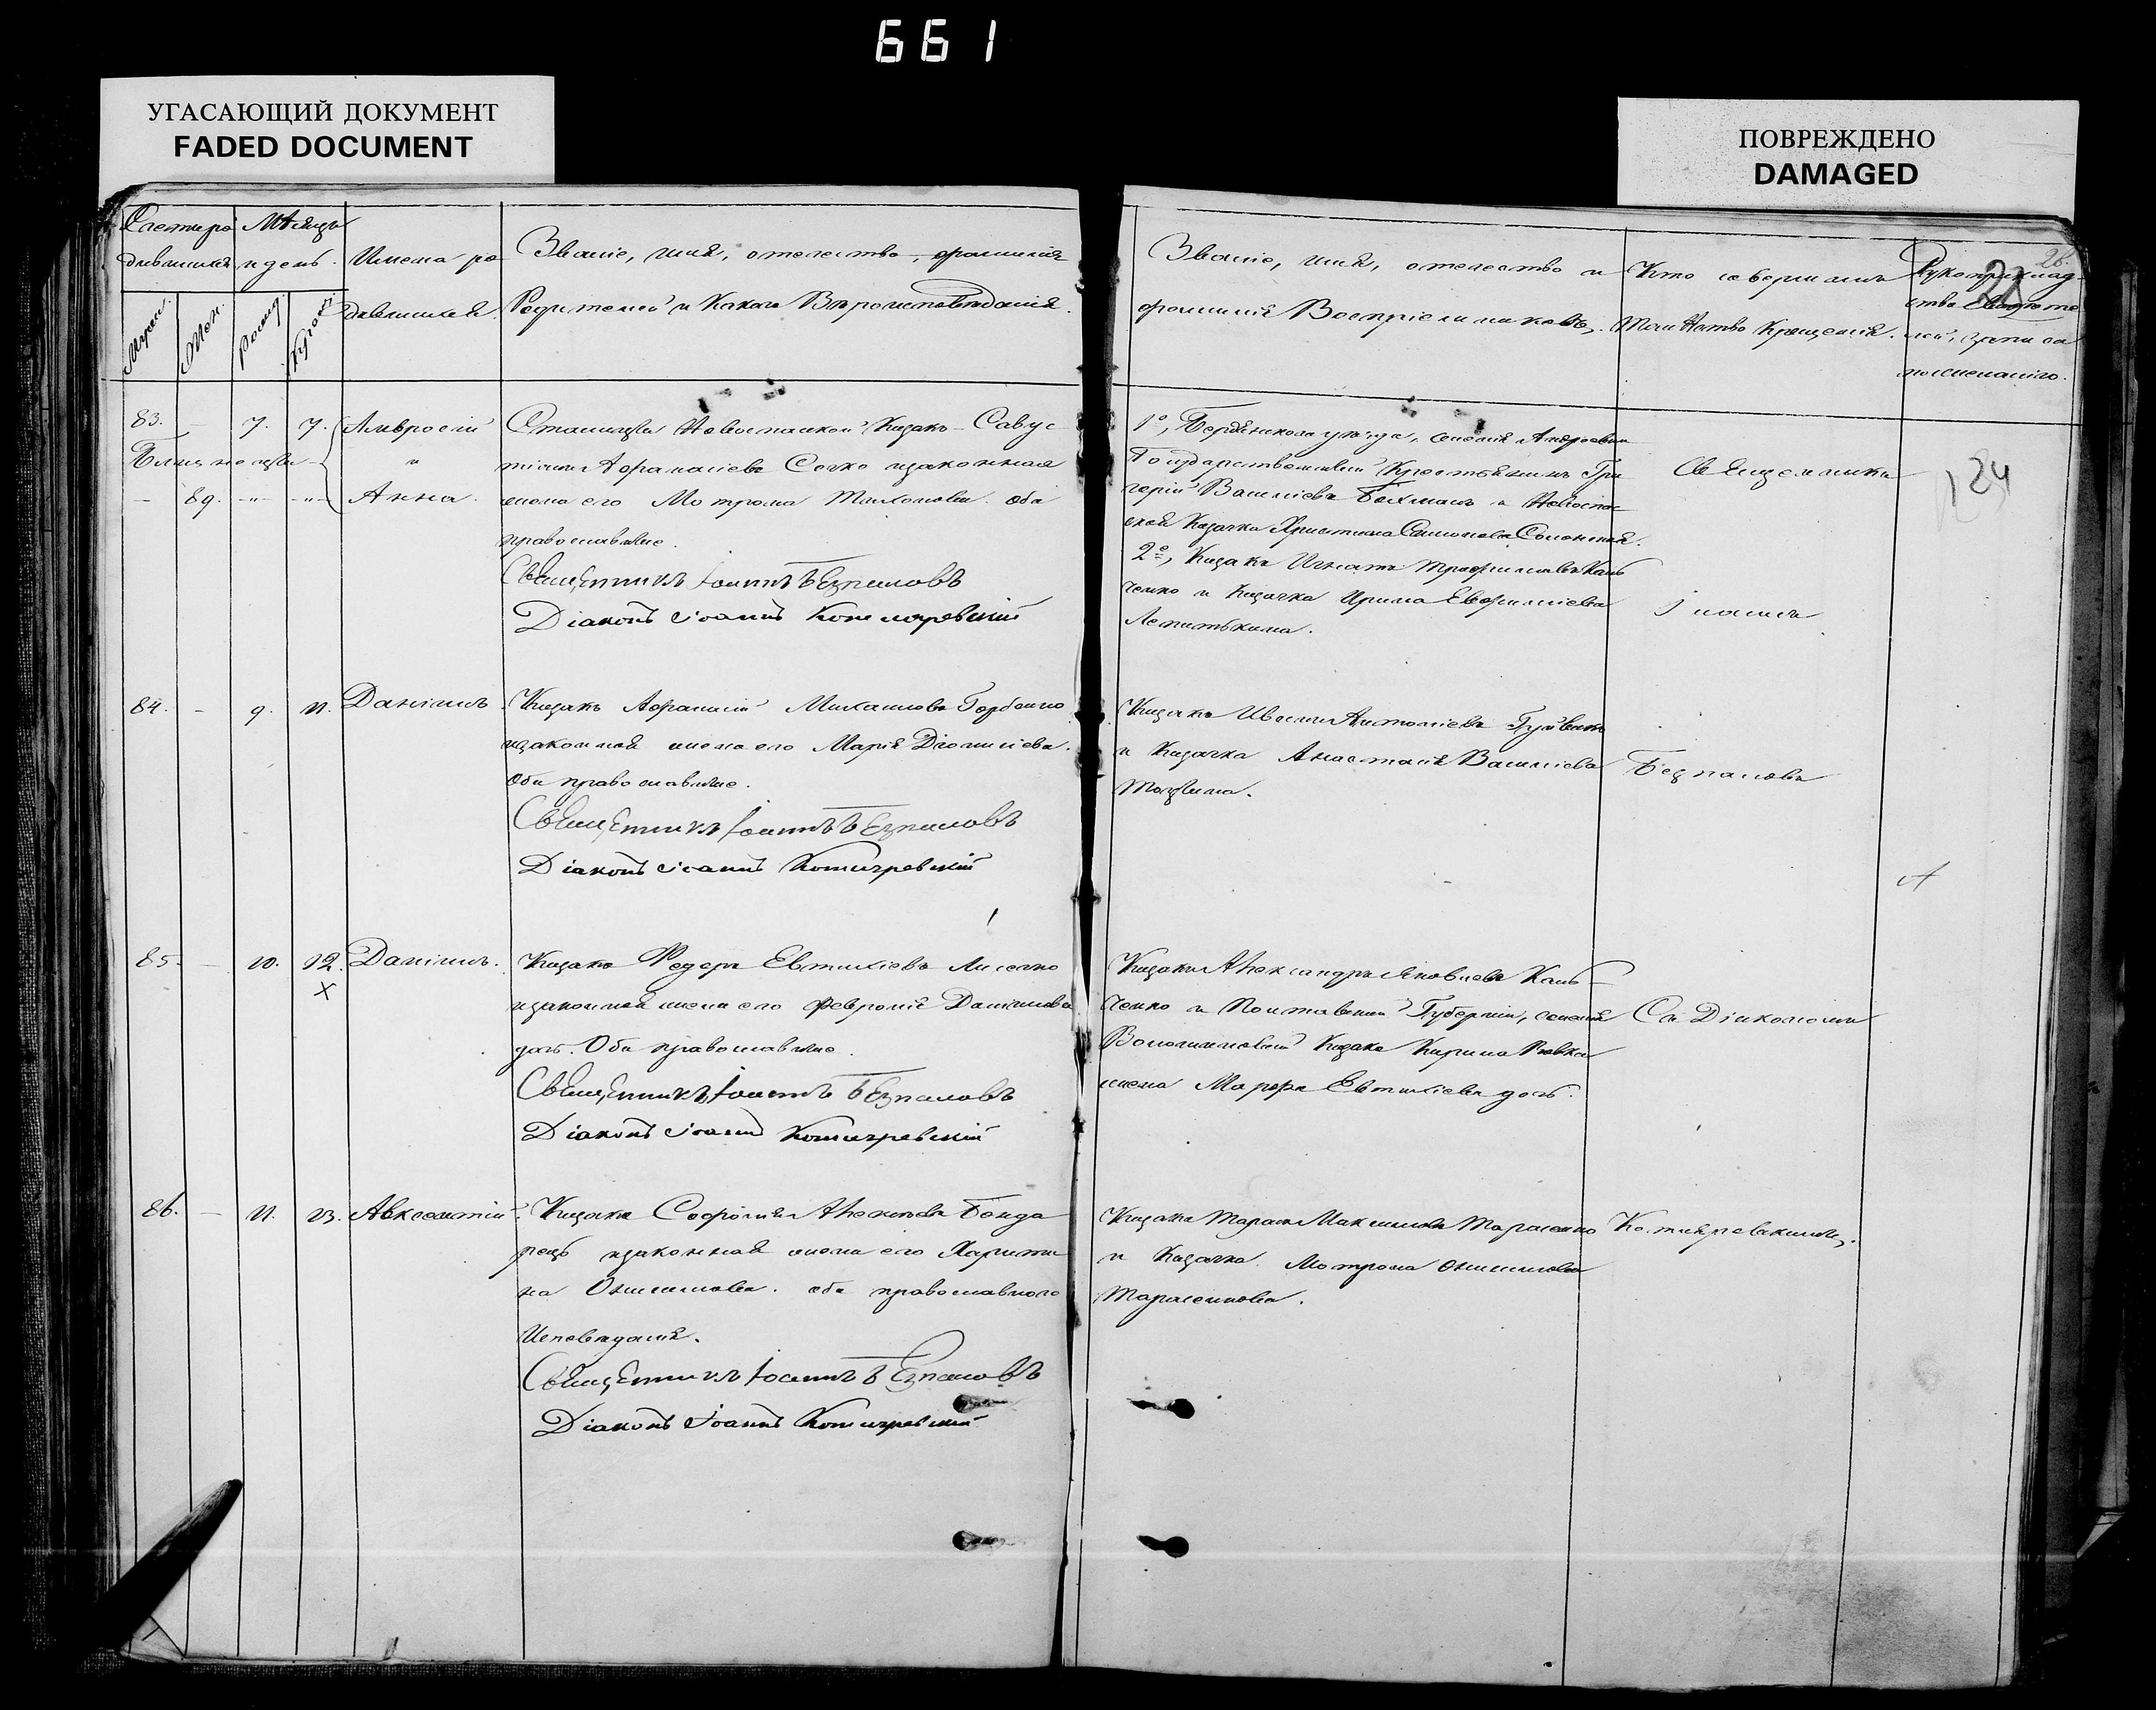 661
УГАСАЮЩИЙ ДОКУМЕНТ
FADED DOCUMENT
ПОВРЕЖДЕНО
DAMAGED
Счетъ ро Мѣсяцъ
дившихся и день. Имена ро
дившихся.
Муж. Жен. Рожд. Крещ.
Званіе, имя, отечество, фамилія
Родителей и Какого Вѣроисповѣданія.
Званіе, имя, отечество и
фамилія Воспріемниковъ.
Кто совершалъ
Таинство Крещенія.
Рукоприклад
ство свидѣте
лей, записи
по желанію.
26.
83. — 7. 7. Амвросій
Близнецы и
— 89. -"- -"- Анна.
Станицы Новоспаской Казакъ Савус
тіанъ Афанасіевъ Сочко законная
жена его Мотрона Тихонова. оба
православные.
Священникъ Іоаннъ Безпаловъ
Діаконъ Іоаннъ Котляревскій
1е, Бердянскаго уѣзда, селенія Андреевки
Государственный Крестьянинъ Гри
горій Василіевъ и Новоспас
ской Казачка Христина
2е, Казакъ Игнатъ Трофимовъ Каль
ченко и Казачка Ирина Евфиміева
Священникъ
Іоаннъ
124
84. — 9. 11. Даніилъ.
Казакъ Афанасій Михаиловъ Горбенко
законная жена его Марія Діонисіева.
Оба православные.
Священникъ Іоаннъ Безпаловъ
Діаконъ Іоаннъ Котляревскій
Казакъ Антоніевъ
и Казачка Анастасія Василіева
Безпаловъ
85. — 10. 12. Даніилъ.
X
Казакъ Федоръ Евтихіевъ Лисечко
законная жена его Февронія Даніилова
дочь. Оба православные.
Священникъ Іоаннъ Безпаловъ
Діаконъ Іоаннъ Котляревскій
Казакъ Александръ Яковлевъ Каль
ченко и Полтавской Губерніи, селенія
Казака Кирила
жена Марфа Евтихіева дочь.
Съ Діакономъ
86. — 11. 13. Авксентій.
Казакъ Софоній Алексѣевъ Бонда
рець законная жена его Харити
на Онисимова. оба православнаго
Исповѣданія.
Священникъ Іоаннъ Безпаловъ
Діаконъ Іоаннъ Котляревскій
Казакъ Тарасъ Максимовъ Тарасенко
и Казачка Мотрона Онисимова
Тарасенкова.
Котляревскимъ.